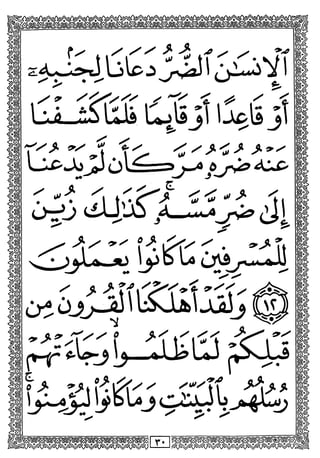 ٱلْإِنسَـٰنَ ٱلضُّرُّ دَعَانَا لِجَنۢبِهِۦٓ
أَوْ قَاعِدًا أَوْ قَآئِمًا فَلَمَّا كَشَفْنَا
عَنْهُ ضُرَّهُۥ مَرَّ كَأَن لَّمْ يَدْعُنَآ
إِلَىٰ ضُرٍّ مَّسَّهُۥ ۚ كَذَٰلِكَ زُيِّنَ
لِلْمُسْرِفِينَ مَا كَانُوا۟ يَعْمَلُونَ
١٢ وَلَقَدْ أَهْلَكْنَا ٱلْقُرُونَ مِن
قَبْلِكُمْ لَمَّا ظَلَمُوا۟ ۙ وَجَآءَتْهُمْ
رُسُلُهُم بِٱلْبَيِّنَـٰتِ وَمَا كَانُوا۟ لِيُؤْمِنُوا۟ ۚ
٣٠